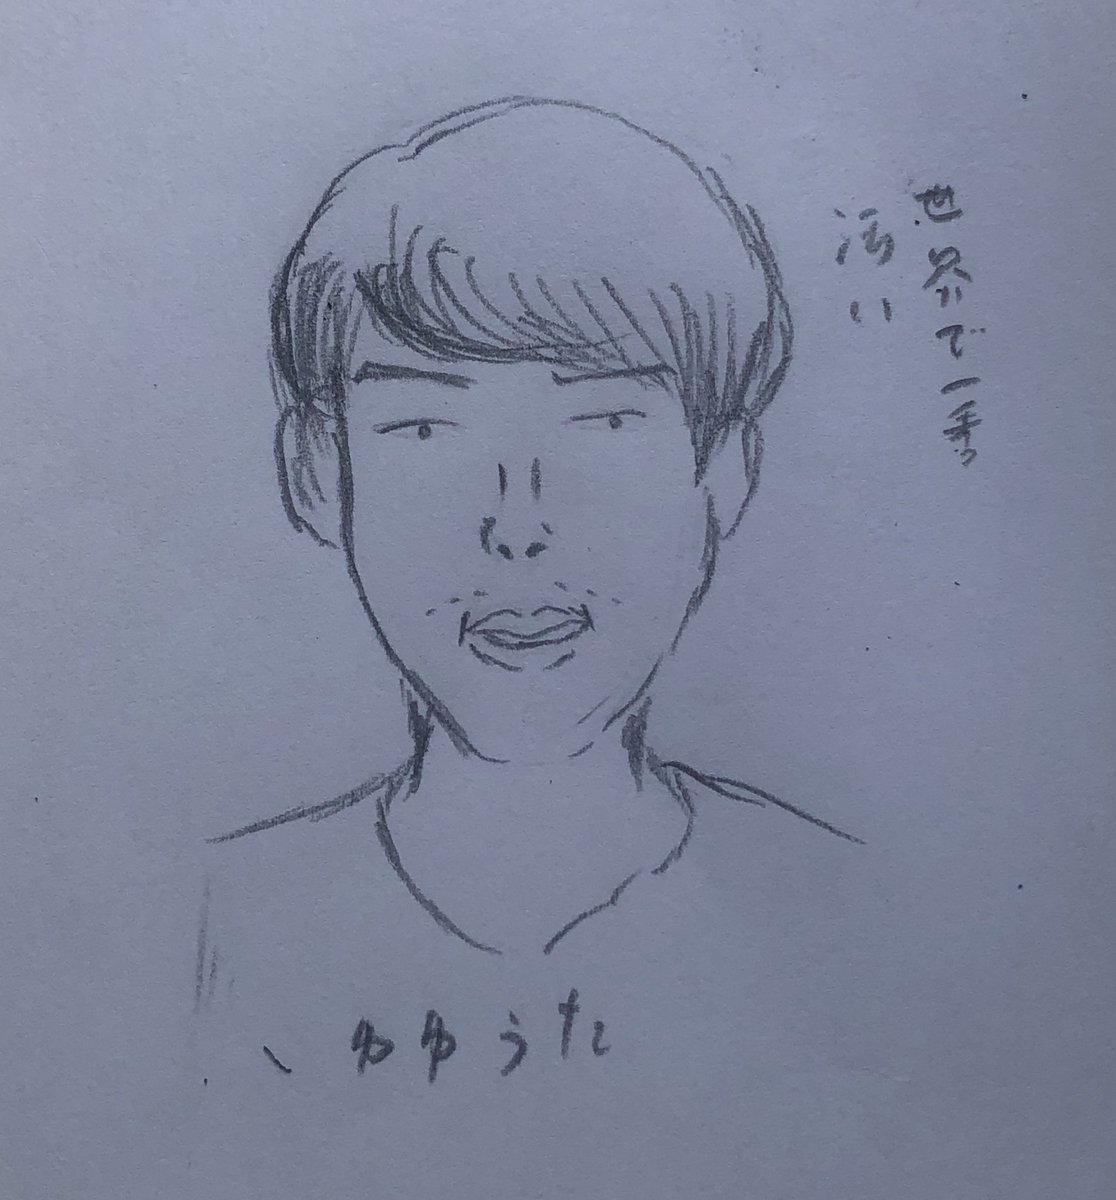 世界で一番
汚い
ゆゆうた